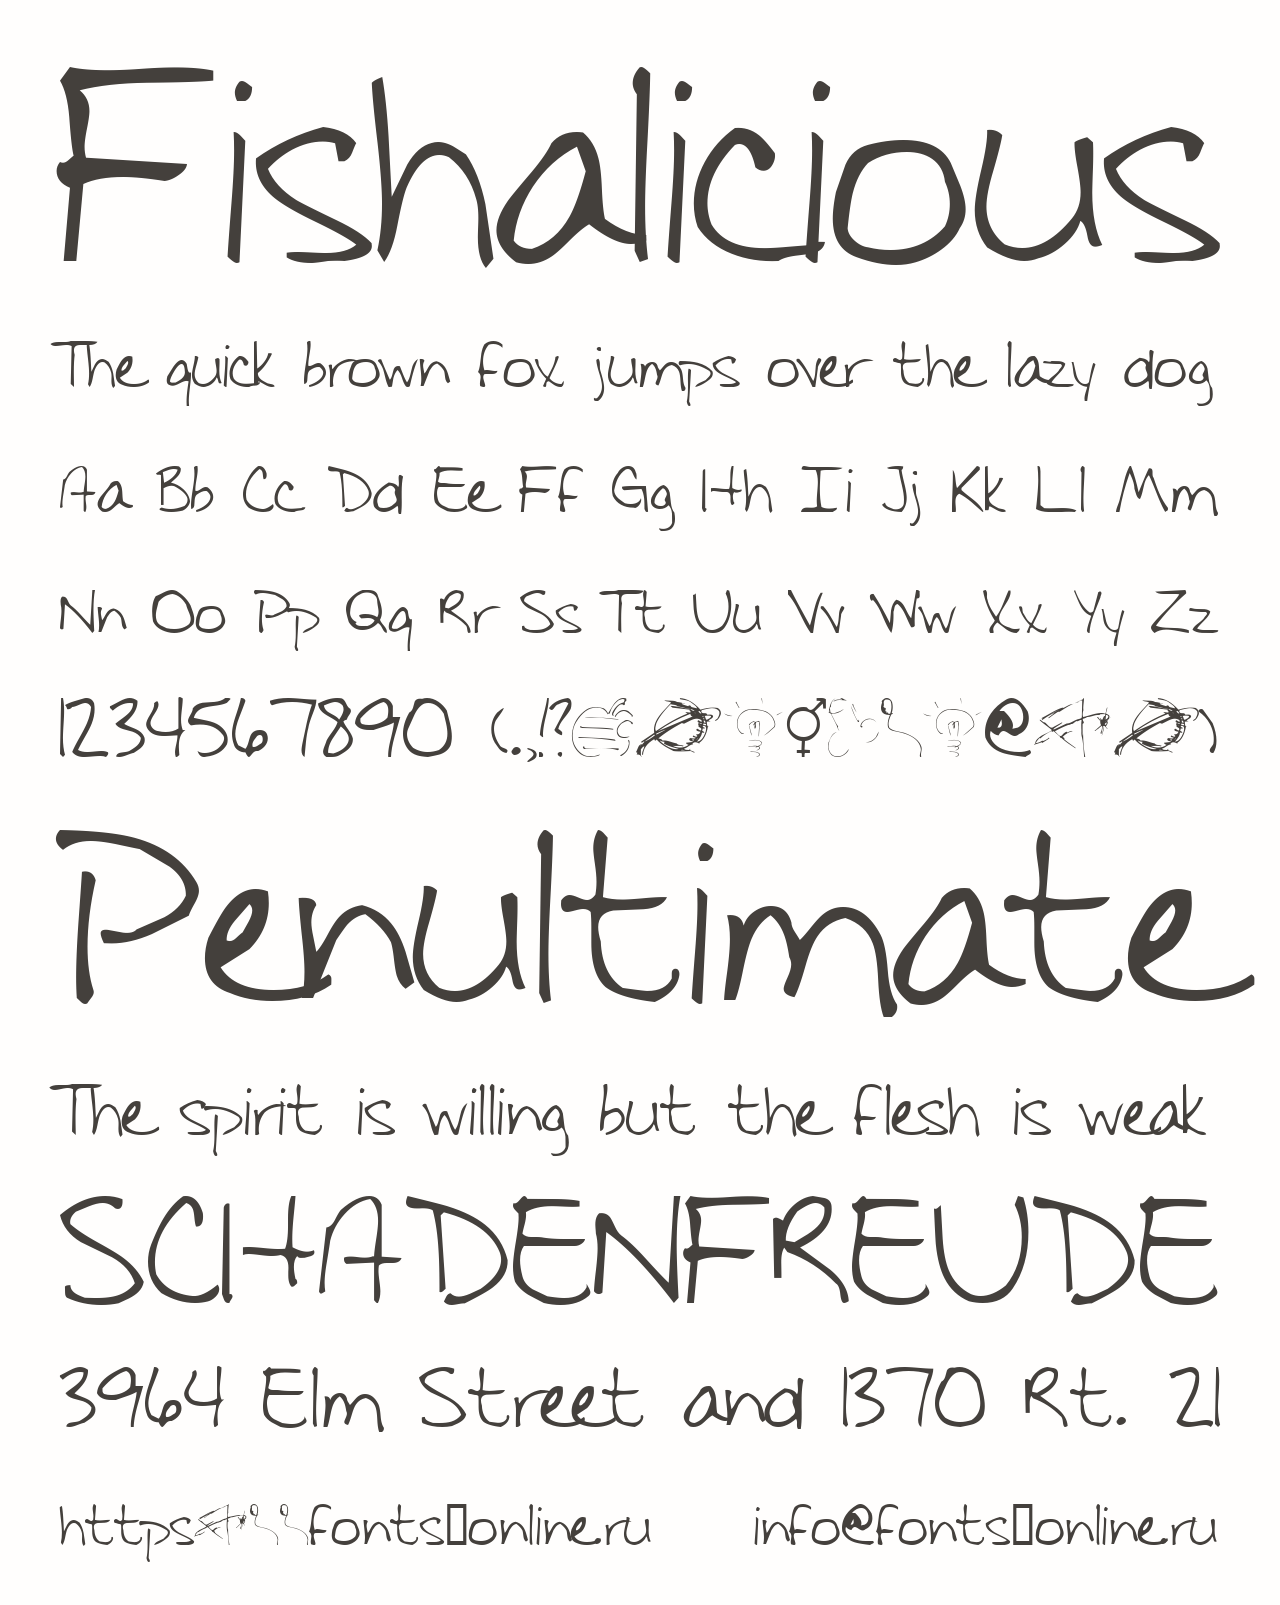 Fishalicious
The quick brown fox jumps over the lazy dog
Aa Bb Cc Dd Ee Ff Gg Hh Ii Jj Kk Ll Mm
Nn Oo Pp Qq Rr Ss Tt Uu Vv Ww Xx Yy Zz
1234567890 (.,!?⚥@)
Penultimate
The spirit is willing but the flesh is weak
SCHADENFREUDE
3964 Elm Street and 1370 Rt. 21
https fonts▯online.ru info@fonts▯online.ru